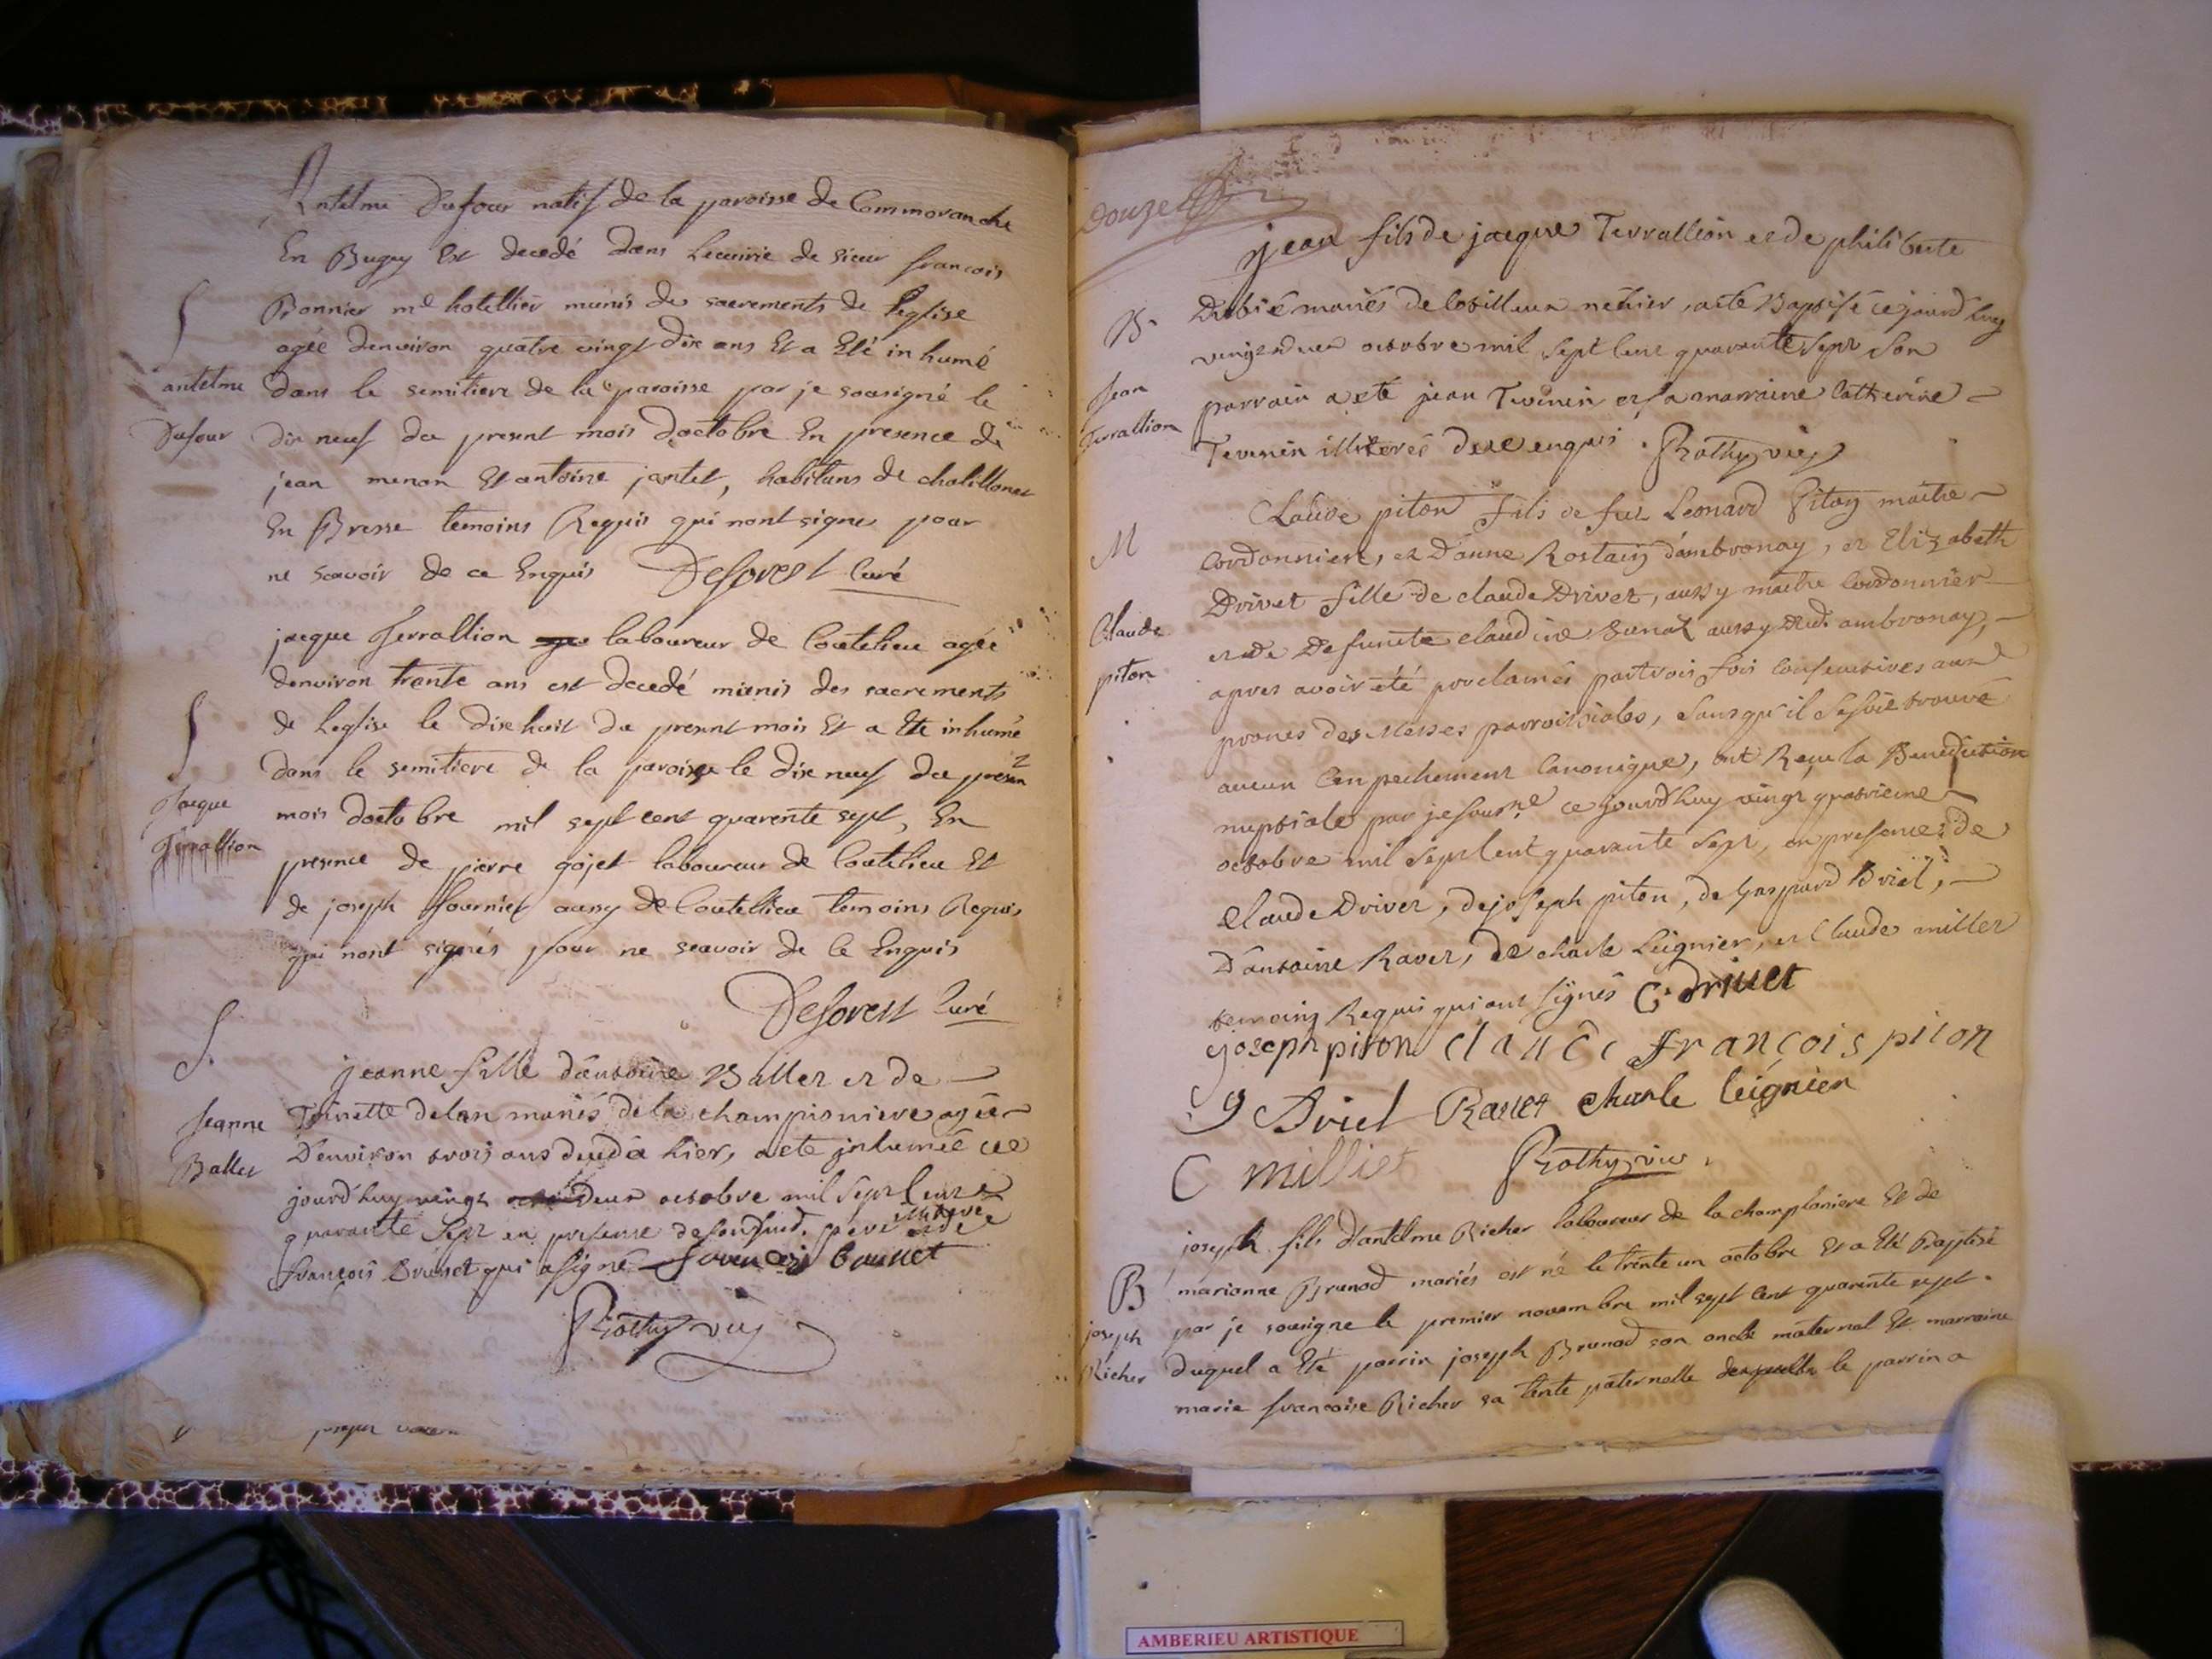 Antelme Dufour natif de la paroisse de Commoranche
En Bugey Est decedé dans Lecuirie de sieur francois
Bonnier md hotellier munis des sacrements de l'eglise
agée denviron quatre vingt dix ans Et a Eté inhumé
dans le semitiere de la paroisse par je sousigné le
dix neuf du present mois doctobre En presence de
jean menon Et antoine jantet, habitans de chatillonet
En Bresse temoins Requis qui nont signes pour
ne scavoir de ce Enquis Deforest Curé
S
antelme
Dufour
jacque ferrallion laboureur de Coutelieu agée
denviron trente ans est decedé munis des sacrements
de Leglise le dixhuit du present mois Et a Ete inhumé
dans le semitiere de la paroisse le dix neuf du present
mois doctobre mil sept cent quarente sept, En
presence de pierre gojet laboureur de Coutelieu Et
de joseph fournier aussy de Coutellieu temoins Requis
qui nont signés pour ne scavoir de Ce Enquis
Deforest Curé
S
Jacque
ferrallion
S.
Jeanne
Ballet
jeanne fille d'antoine Ballet et de
Toinette delan mariés de la championiere agée
D'environ trois ans decedéa hier, a ete inhumée ce
jourd'huy vingt deux octobre mil sept cent
quarante sept en presence de sondit. pere et de
françois Brunet qui a signé francois bounet
Rothy vic
Douze
jean fils de jacque Terrallion et de philiberte
Dubié mariés de Cosillieux métier, a eté Baptisé ce jourd'huy
vingt deux octobre mil sept Cent quarante sept Son
parrain a eté jean Tevenin et sa marraine Catherine
Tevenin illiterés de ce enquis. Rothy vic
B.
Jean
Terrallion
Claude piton fils de feu Leonard Piton maitre
Cordonnier, et D'anne Rostain d'ambronay, et Elizabeth
Drivet fille de claude Drivet, aussy maitre Cordonnier
et de Defuncte claudine aussy dud. ambronay,
apres avoir été proclamés par trois fois Consecutives aux
prones des Messes parroissiales, sans qu'il se soit trouvé
aucun Empechement Canonique, ont Reçu la Benediction
nuptiale par je souss.né ce jourd'huy vingt quatrieme
octobre mil Sept Cent quarante Sept, en presence de
Claude Drivet, de joseph piton, de Gaspard Briel,
D'antoine Ravet, de charle Leignier, et Claude millet
temoins Requis qui ont signés C. drivet
joseph piton claude françois piton
g Briel Ravet charle leignier
C milliet Rothy vic.
M
Claude
piton
joseph fils d'antelme Richer laboureur de la championiere Et de
marianne Brunod mariés est né le trente un octobre Et a Eté Baptisé
par je sousigne le premier novembre mil sept cent quarente sept.
duquel a Eté parrin joseph Brunod son oncle maternel Et marraine
marie francoise Richer sa tante paternelle desquells le parrin a
B
joseph
Richer
AMBERIEU ARTISTIQUE